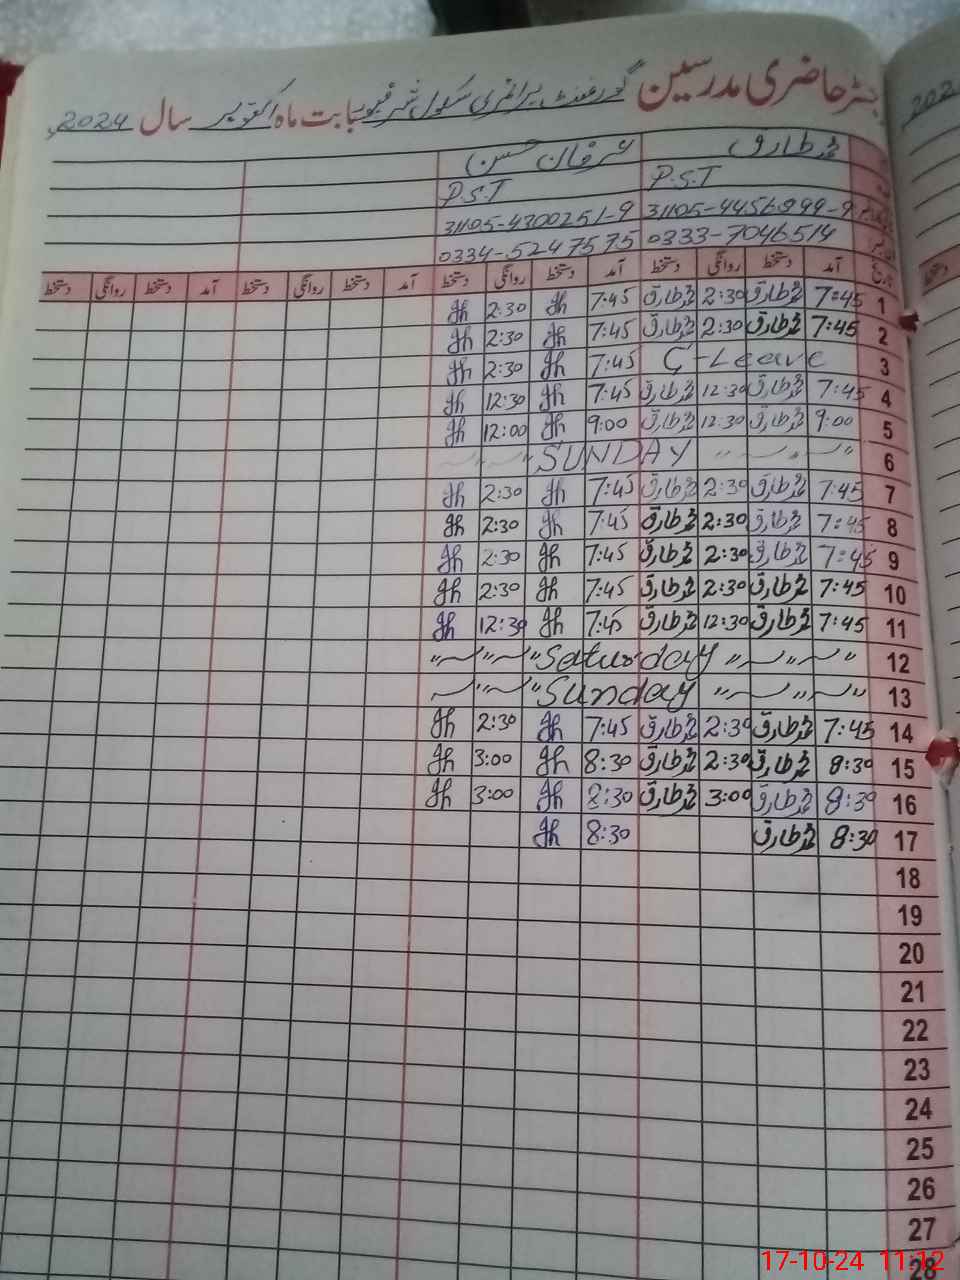 رجسٹر حاضری مدرسین گورنمنٹ پرائمری سکول بابت ماہ اکتوبر سال 2024ء
محمد طارق عرفان حسن
P.S.T P.S.T
31105-4456899-9 31105-4300251-9
0333-7046514 0334-5247575
تاریخ آمد دستخط روانگی دستخط آمد دستخط روانگی دستخط آمد دستخط روانگی دستخط آمد دستخط روانگی دستخط
1 7:45 محمد طارق 2:30 محمد طارق 7:45 2:30
2 7:45 محمد طارق 2:30 محمد طارق 7:45 2:30
3 C-Leave 7:45 2:30
4 7:45 محمد طارق 12:30 محمد طارق 7:45 12:30
5 9:00 محمد طارق 12:30 محمد طارق 9:00 12:00
6 SUNDAY
7 7:45 محمد طارق 2:30 محمد طارق 7:45 2:30
8 7:45 محمد طارق 2:30 محمد طارق 7:45 2:30
9 7:45 محمد طارق 2:30 محمد طارق 7:45 2:30
10 7:45 محمد طارق 2:30 محمد طارق 7:45 2:30
11 7:45 محمد طارق 12:30 محمد طارق 7:45 12:30
12 Saturday
13 Sunday
14 7:45 محمد طارق 2:30 محمد طارق 7:45 2:30
15 8:30 محمد طارق 2:30 محمد طارق 8:30 3:00
16 8:30 محمد طارق 3:00 محمد طارق 8:30 3:00
17 8:30 محمد طارق 8:30
18
19
20
21
22
23
24
25
26
27
28
17-10-24 11:12